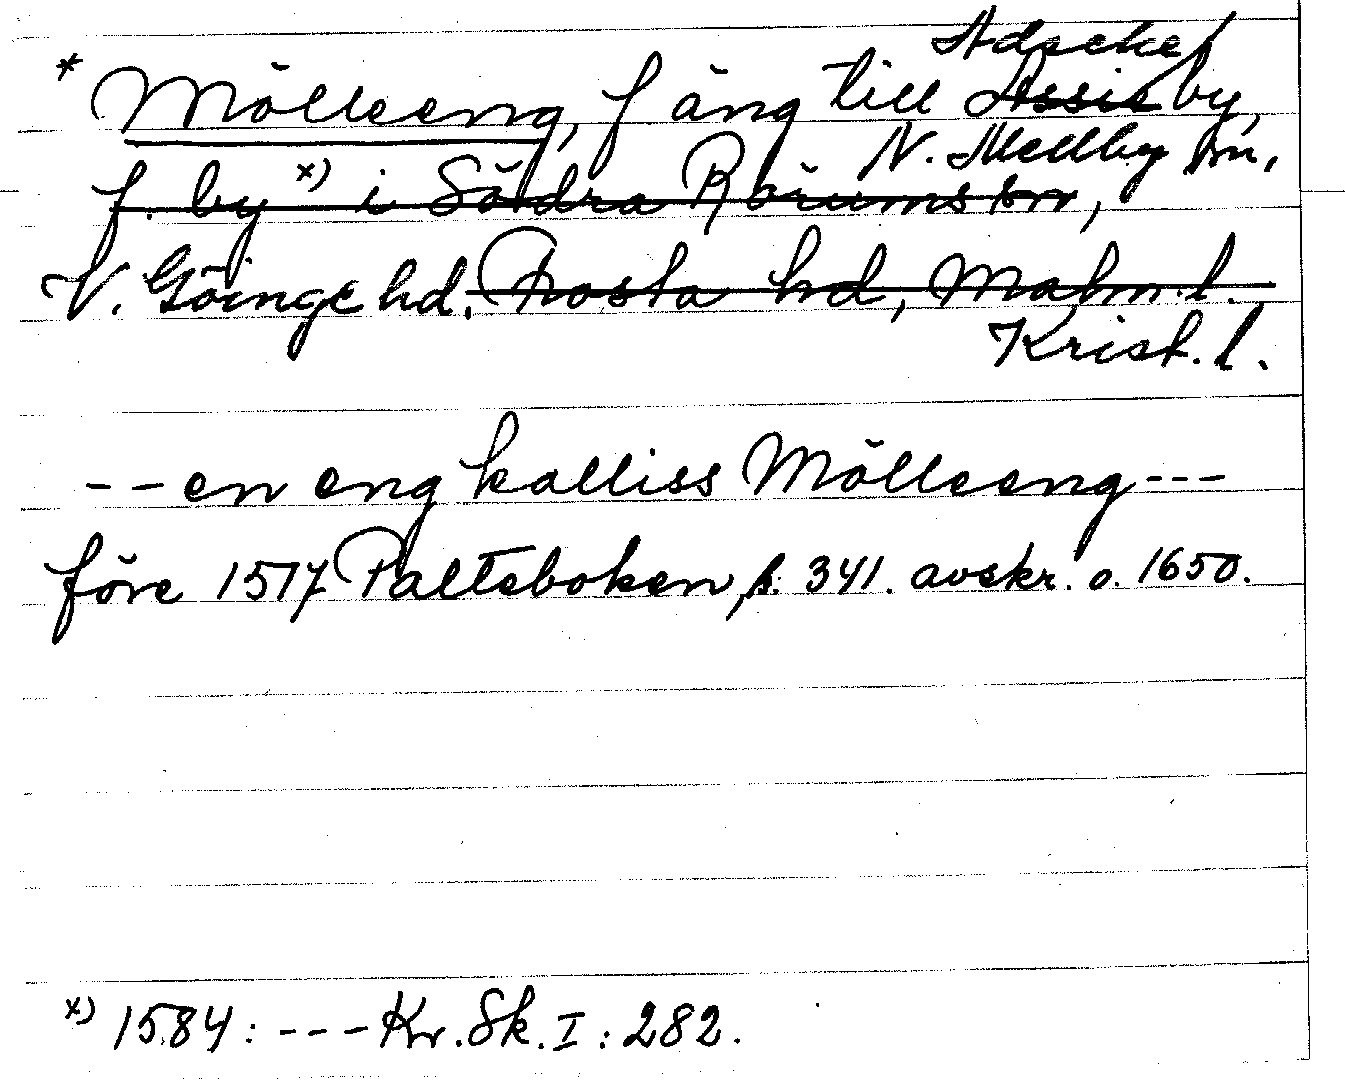 Adseke
* Mölleeng, f äng till Assie by,
N. Mellby sn,
f. by x) i Södra Rörums sn,
V. Göinge hd. Frosta hd, Malm. l.
Krist. l.
-- en eng kalliss Mölleeng ---
före 1517 Palteboken, s. 341. avskr. o. 1650.
x) 1584: --- Kr. Sk. I: 282.